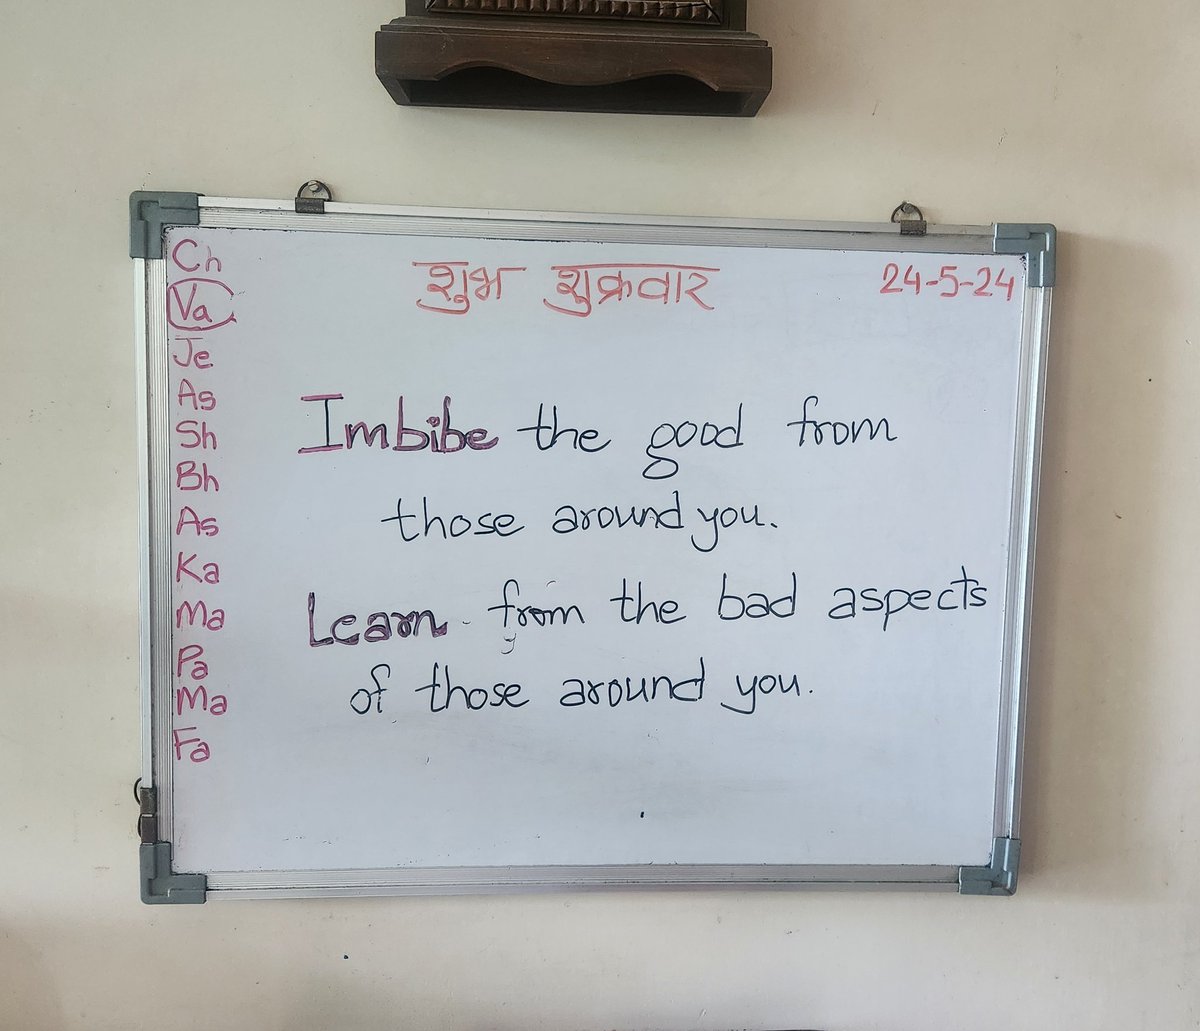 शुभ शुक्रवार 24-5-24
Ch
Va
Je
As
Sh
Bh
As
Ka
Ma
Pa
Ma
Fa
Imbibe the good from
those around you.
Learn from the bad aspects
of those around you.